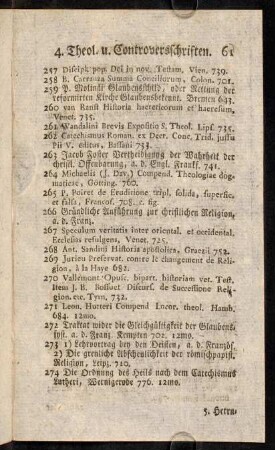 4. Theol. u. Controversschriften. 61
257 Discipl. pop. Dei in nov. Testam. Vien. 739.
258 B. Carranza Summa Conciliorum, Colon. 701.
259 P. Molinäi Glaubensschild, oder Rettung der
reformirten Kirche Glaubensbekennt. Bremen 643.
260 van Ranst Historia haereticorum et haeresum,
Venet. 735.
261 Wandalini Brevis Expositio S. Theol. Lips. 735.
262 Catechismus Roman. ex Decr. Conc. Trid. jussu
Pii V. editus, Bassani 733.
263 Jacob Foster Vertheidigung der Wahrheit der
christl. Offenbarung, a. d. Engl. Frankf. 741.
264 Michaelis (J. Dav.) Compend. Theologiae dog-
maticae, Götting. 760.
265 P. Poiret de Eruditione tripl. solida, superfic.
et falsa, Francof. 708. c. fig.
266 Gründliche Ausführung zur christlichen Religion,
a. d. Franz.
267 Speculum veritatis inter oriental. et occidental.
Ecclesias refulgens, Venet. 725.
268 Ant. Sandini Historia apostolica, Graezii 752.
269 Jurieu Preservat. contre le changement de Reli-
gion, à la Haye 682.
270 Vallemont Opusc. bipart. historiam vet. Test.
Item J. B. Bossuet Discurs. de Successione Reli-
gion. etc. Tyrn. 732.
271 Leon. Hutteri Compend Locor. theol. Hamb.
684. 12mo.
272 Traktat wider die Gleichgültigkeit der Glaubens-
syst. a. d. Franz. Kempten 702. 12mo.
273 1) Lehrvortrag bey den Deisten, a. d. Französ.
2) Die greuliche Abscheulichkeit der römischpapist.
Religion, Leipz. 710.
274 Die Ordnung des Heils nach dem Catechismus
Lutheri, Wernigerode 776. 12mo.
5. Hetru-